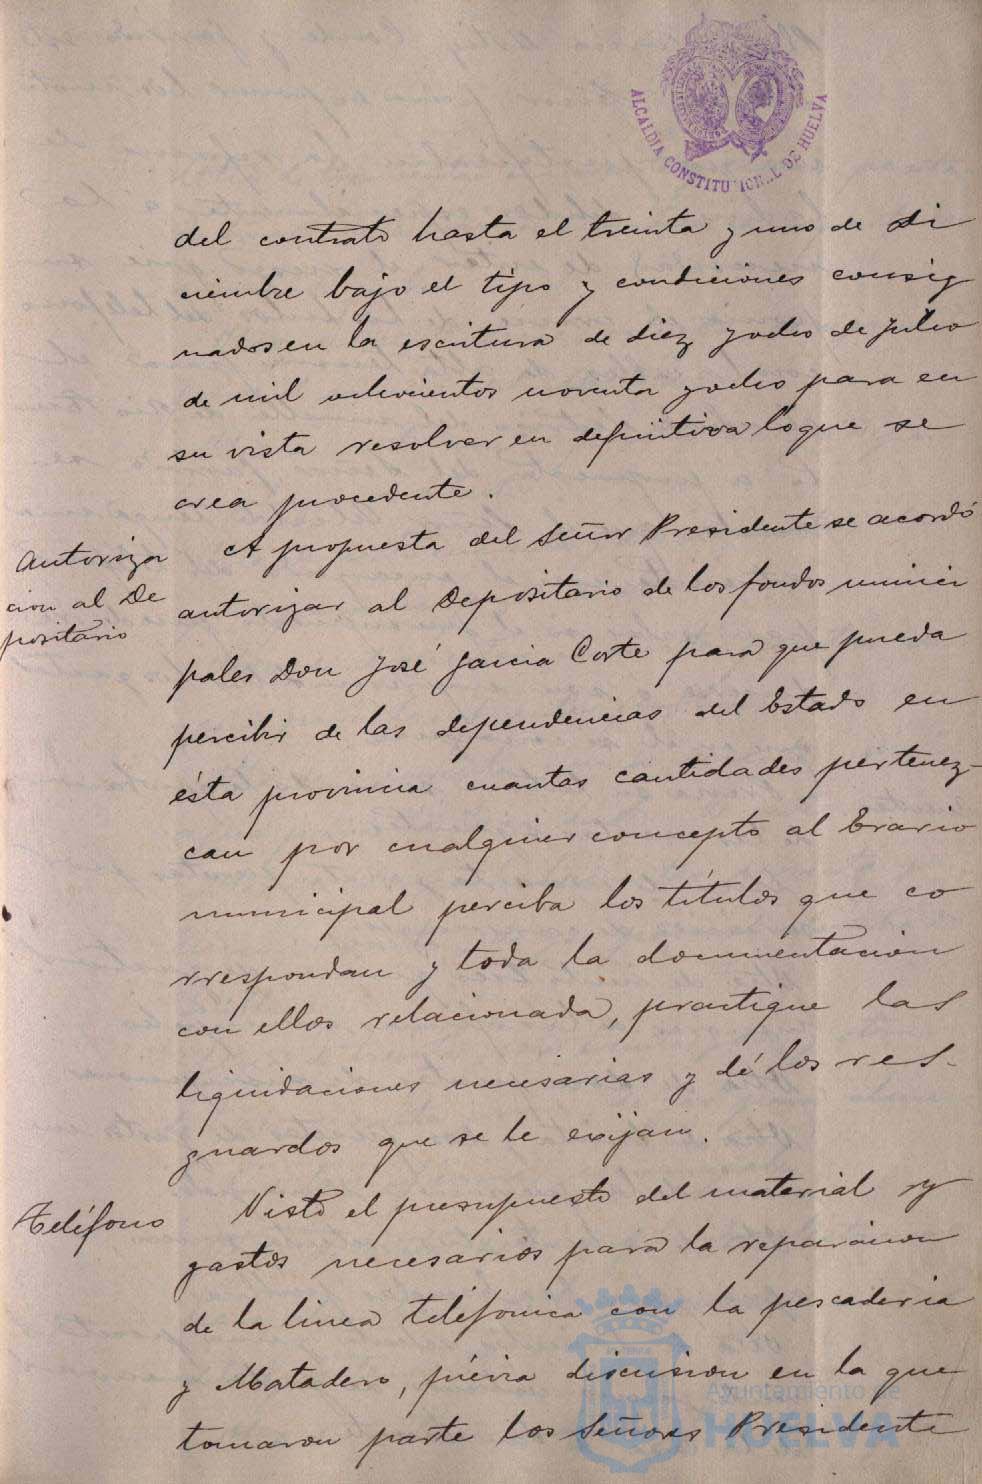 ALCALDÍA CONSTITUCIONAL DE HUELVA
del contrato hasta el treinta y uno de Di
ciembre bajo el tipo y condiciones consig
nados en la escritura de diez y ocho de Julio
de mil ochocientos noventa y ocho para en
su vista resolver en definitiva lo que se
crea procedente.
Autoriza
cion al De
positario
A propuesta del Señor Presidente se acordó
autorizar al Depositario de los fondos munici
pales Don José Garcia Corte para que pueda
percibir de las dependencias del Estado en
ésta provincia cuantas cantidades pertenez-
can por cualquier concepto al Erario
municipal perciba los títulos que co
rrespondan y toda la documentacion
con ellos relacionada, practique las
liquidaciones necesarias y dé los res-
guardos que se le exijan.
Teléfono
Visto el presupuesto del material y
gastos necesarios para la reparacion
de la linea telefonica con la pescaderia
y Matadero, prévia discusion en la que
tomaron parte los Señores Presidente
Ayuntamiento de
HUELVA